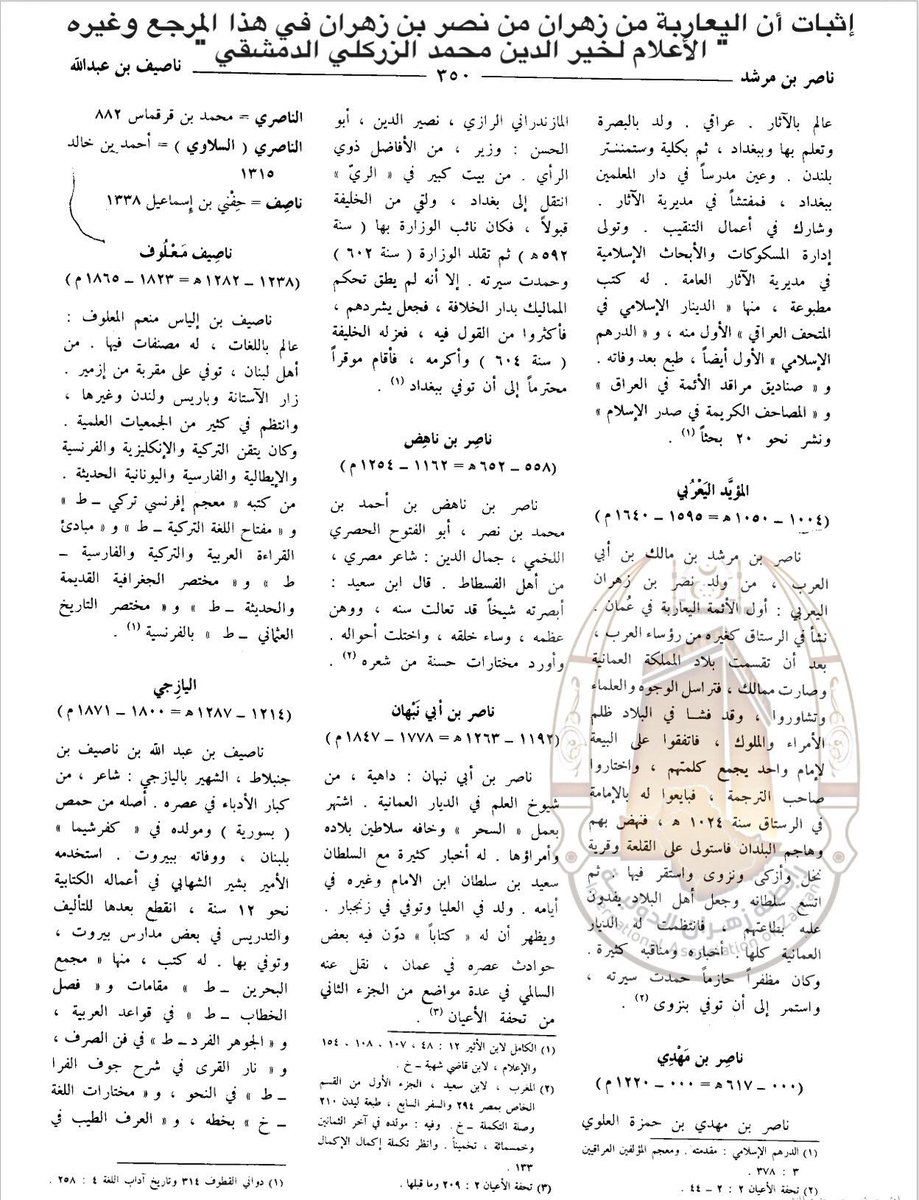 إثبات أن اليعاربة من زهران من نصر بن زهران في هذا المرجع وغيره
" الأعلام لخير الدين محمد الزركلي الدمشقي "
ناصر بن مرشد ٣٥٠ ناصيف بن عبدالله
عالم بالآثار . عراقي . ولد بالبصرة
وتعلم بها وببغداد ، ثم بكلية وستمنستر
بلندن . وعين مدرساً في دار المعلمين
ببغداد ، فمفتشاً في مديرية الآثار .
وشارك في أعمال التنقيب . وتولى
إدارة المسكوكات والأبحاث الإسلامية
في مديرية الآثار العامة . له كتب
مطبوعة ، منها « الدينار الإسلامي في
المتحف العراقي » الأول منه ، و « الدرهم
الإسلامي » الأول أيضاً ، طبع بعد وفاته .
و « صناديق مراقد الأئمة في العراق »
و « المصاحف الكريمة في صدر الإسلام »
ونشر نحو ٢٠ بحثاً (١) .
المؤيَّد اليَعْرُبي
(١٠٠٤ – ١٠٥٠ ه = ١٥٩٥ – ١٦٤٠ م)
ناصر بن مرشد بن مالك بن أبي
العرب ، من ولد نصر بن زهران
اليعربي : أول الأئمة اليعاربة في عُمان .
نشأ في الرستاق كغيره من رؤساء العرب ،
بعد أن تقسمت بلاد المملكة العمانية
وصارت ممالك ، فتراسل الوجوه والعلماء
وتشاوروا ، وقد فشا في البلاد ظلم
الأمراء والملوك ، فاتفقوا على البيعة
لإمام واحد يجمع كلمتهم ، واختاروا
صاحب الترجمة ، فبايعوا له بالإمامة
في الرستاق سنة ١٠٢٤ ه ، فنهض بهم
وهاجم البلدان فاستولى على القلعة وقرية
نخل وأزكى ونزوى واستقر فيها . ثم
اتسع سلطانه وجعل أهل البلاد يفدون
عليه بطاعتهم ، فانتظمت له الديار
العمانية كلها . أخباره ومناقبه كثيرة .
وكان مظفراً حازماً حمدت سيرته ،
واستمر إلى أن توفي بنزوى (٢) .
ناصر بن مَهْدِي
(٠٠٠ – ٦١٧ ه = ٠٠٠ – ١٢٢٠ م)
ناصر بن مهدي بن حمزة العلوي
(١) الدرهم الإسلامي : مقدمته . ومعجم المؤلفين العراقيين
٣ : ٣٧٨ .
(٢) تحفة الأعيان ٢ : ٢ – ٤٤ .
المازندراني الرازي ، نصير الدين ، أبو
الحسن : وزير ، من الأفاضل ذوي
الرأي . من بيت كبير في « الريّ »
انتقل إلى بغداد ، ولقي من الخليفة
قبولاً ، فكان نائب الوزارة بها ( سنة
٥٩٢ ه ) ثم تقلد الوزارة ( سنة ٦٠٢ )
وحمدت سيرته . إلا أنه لم يطق تحكم
المماليك بدار الخلافة ، فجعل يشردهم ،
فأكثروا من القول فيه ، فعزله الخليفة
( سنة ٦٠٤ ) وأكرمه ، فأقام موقراً
محترماً إلى أن توفي ببغداد (١) .
ناصر بن ناهِض
(٥٥٨ – ٦٥٢ ه = ١١٦٢ – ١٢٥٤ م)
ناصر بن ناهض بن أحمد بن
محمد بن نصر ، أبو الفتوح الحصري
اللخمي ، جمال الدين : شاعر مصري ،
من أهل الفسطاط . قال ابن سعيد :
أبصرته شيخاً قد تعالت سنه ، ووهن
عظمه ، وساء خلقه ، واختلت أحواله .
وأورد مختارات حسنة من شعره (٢) .
ناصر بن أبي نَبْهان
(١١٩٢ – ١٢٦٣ ه = ١٧٧٨ – ١٨٤٧ م)
ناصر بن أبي نبهان : داهية ، من
شيوخ العلم في الديار العمانية . اشتهر
بعمل « السحر » وخافه سلاطين بلاده
وأمراؤها . له أخبار كثيرة مع السلطان
سعيد بن سلطان ابن الامام وغيره في
أيامه . ولد في العليا وتوفي في زنجبار .
ويظهر أن له « كتاباً » دوّن فيه بعض
حوادث عصره في عمان ، نقل عنه
السالمي في عدة مواضع من الجزء الثاني
من تحفة الأعيان (٣) .
(١) الكامل لابن الأثير ١٢ : ٤٨ ، ١٠٧ ، ١٠٨ ، ١٥٤
والإعلام ، لابن قاضي شهبة – خ .
(٢) المغرب ، لابن سعيد ، الجزء الأول من القسم
الخاص بمصر ٢٩٤ والسفر السابع ، طبعة ليدن ٢١٠
وصلة التكملة – خ . وفيه : مولده في آخر الثمانين
وخمسمائة ، تخميناً . وانظر تكملة إكمال الإكمال
١٣٣ .
(٣) تحفة الأعيان ٢ : ٢٠٩ وما قبلها .
الناصري = محمد بن قرقماس ٨٨٢
الناصري ( السلاوي ) = أحمد بن خالد
١٣١٥
ناصِف = حِفْني بن إسماعيل ١٣٣٨
ناصيف مَعْلُوف
(١٢٣٨ – ١٢٨٢ ه = ١٨٢٣ – ١٨٦٥ م)
ناصيف بن إلياس منعم المعلوف :
عالم باللغات ، له مصنفات فيها . من
أهل لبنان ، توفي على مقربة من إزمير .
زار الآستانة وباريس ولندن وغيرها ،
وانتظم في كثير من الجمعيات العلمية .
وكان يتقن التركية والإنكليزية والفرنسية
والإيطالية والفارسية واليونانية الحديثة .
من كتبه « معجم إفرنسي تركي – ط »
و « مفتاح اللغة التركية – ط » و « مبادئ
القراءة العربية والتركية والفارسية –
ط » و « مختصر الجغرافية القديمة
والحديثة – ط » و « مختصر التاريخ
العثماني – ط » بالفرنسية (١) .
اليازِجي
(١٢١٤ – ١٢٨٧ ه = ١٨٠٠ – ١٨٧١ م)
ناصيف بن عبد الله بن ناصيف بن
جنبلاط ، الشهير باليازجي : شاعر ، من
كبار الأدباء في عصره . أصله من حمص
( بسورية ) ومولده في « كفرشيما »
بلبنان ، ووفاته ببيروت . استخدمه
الأمير بشير الشهابي في أعماله الكتابية
نحو ١٢ سنة ، انقطع بعدها للتأليف
والتدريس في بعض مدارس بيروت ،
وتوفي بها . له كتب ، منها « مجمع
البحرين – ط » مقامات و « فصل
الخطاب – ط » في قواعد العربية ،
و « الجوهر الفرد – ط » في فن الصرف ،
و « نار القرى في شرح جوف الفرا
– ط » في النحو ، و « مختارات اللغة
– خ » بخطه ، و « العرف الطيب في
(١) دواني القطوف ٣١٤ وتاريخ آداب اللغة ٤ : ٢٥٨ .
International Association of Zahran